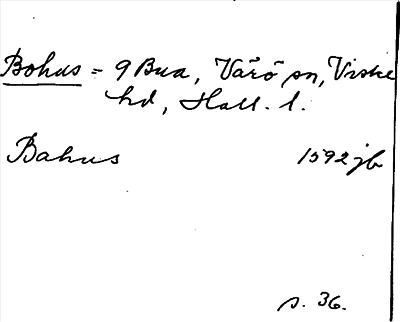 Bohus = 9 Bua, Värö sn, Viske
hd, Hall. l.
Bahus 1592 jb
s. 36.